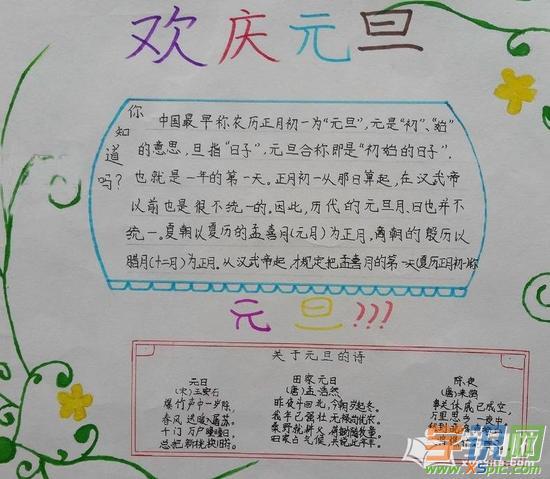 欢庆元旦
你知道吗?
中国最早称农历正月初一为"元旦",元是"初"、"始"
的意思,旦指"日子",元旦合称即是"初始的日子",
也就是一年的第一天。正月初一从那日算起,在汉武帝
以前也是很不统一的。因此,历代的元旦月、日也并不
统一。夏朝以夏历的孟喜月(元月)为正月,商朝的殷历以
腊月(十二月)为正月。从汉武帝起,才规定把孟喜月的第一天(夏历正月初一)称
元旦???
关于元旦的诗
元日
(宋)王安石
爆竹声中一岁除,
春风送暖入屠苏。
千门万户曈曈日,
总把新桃换旧符。
田家元日
(唐)孟浩然
昨夜斗回北,今朝岁起东。
我年已强壮,无禄尚忧农。
桑野就耕父,荷锄随牧童。
田家占气候,共说此年丰。
除夜
(唐)来鹄
事关休戚已成空,
万里思 一夜中
学识网
www.XSpic.com